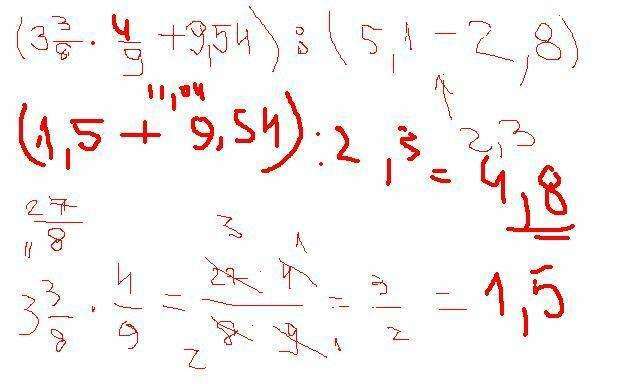 (3 3/8 · 4/9 + 9,54) : (5,1 - 2,8)
11,04
2,3
(1,5 + 9,54) : 2,3 = 4,8
27/8
"
3 1
3 3/8 · 4/9 = 27 · 4 / 8 · 9 = 3/2 = 1,5
2 1